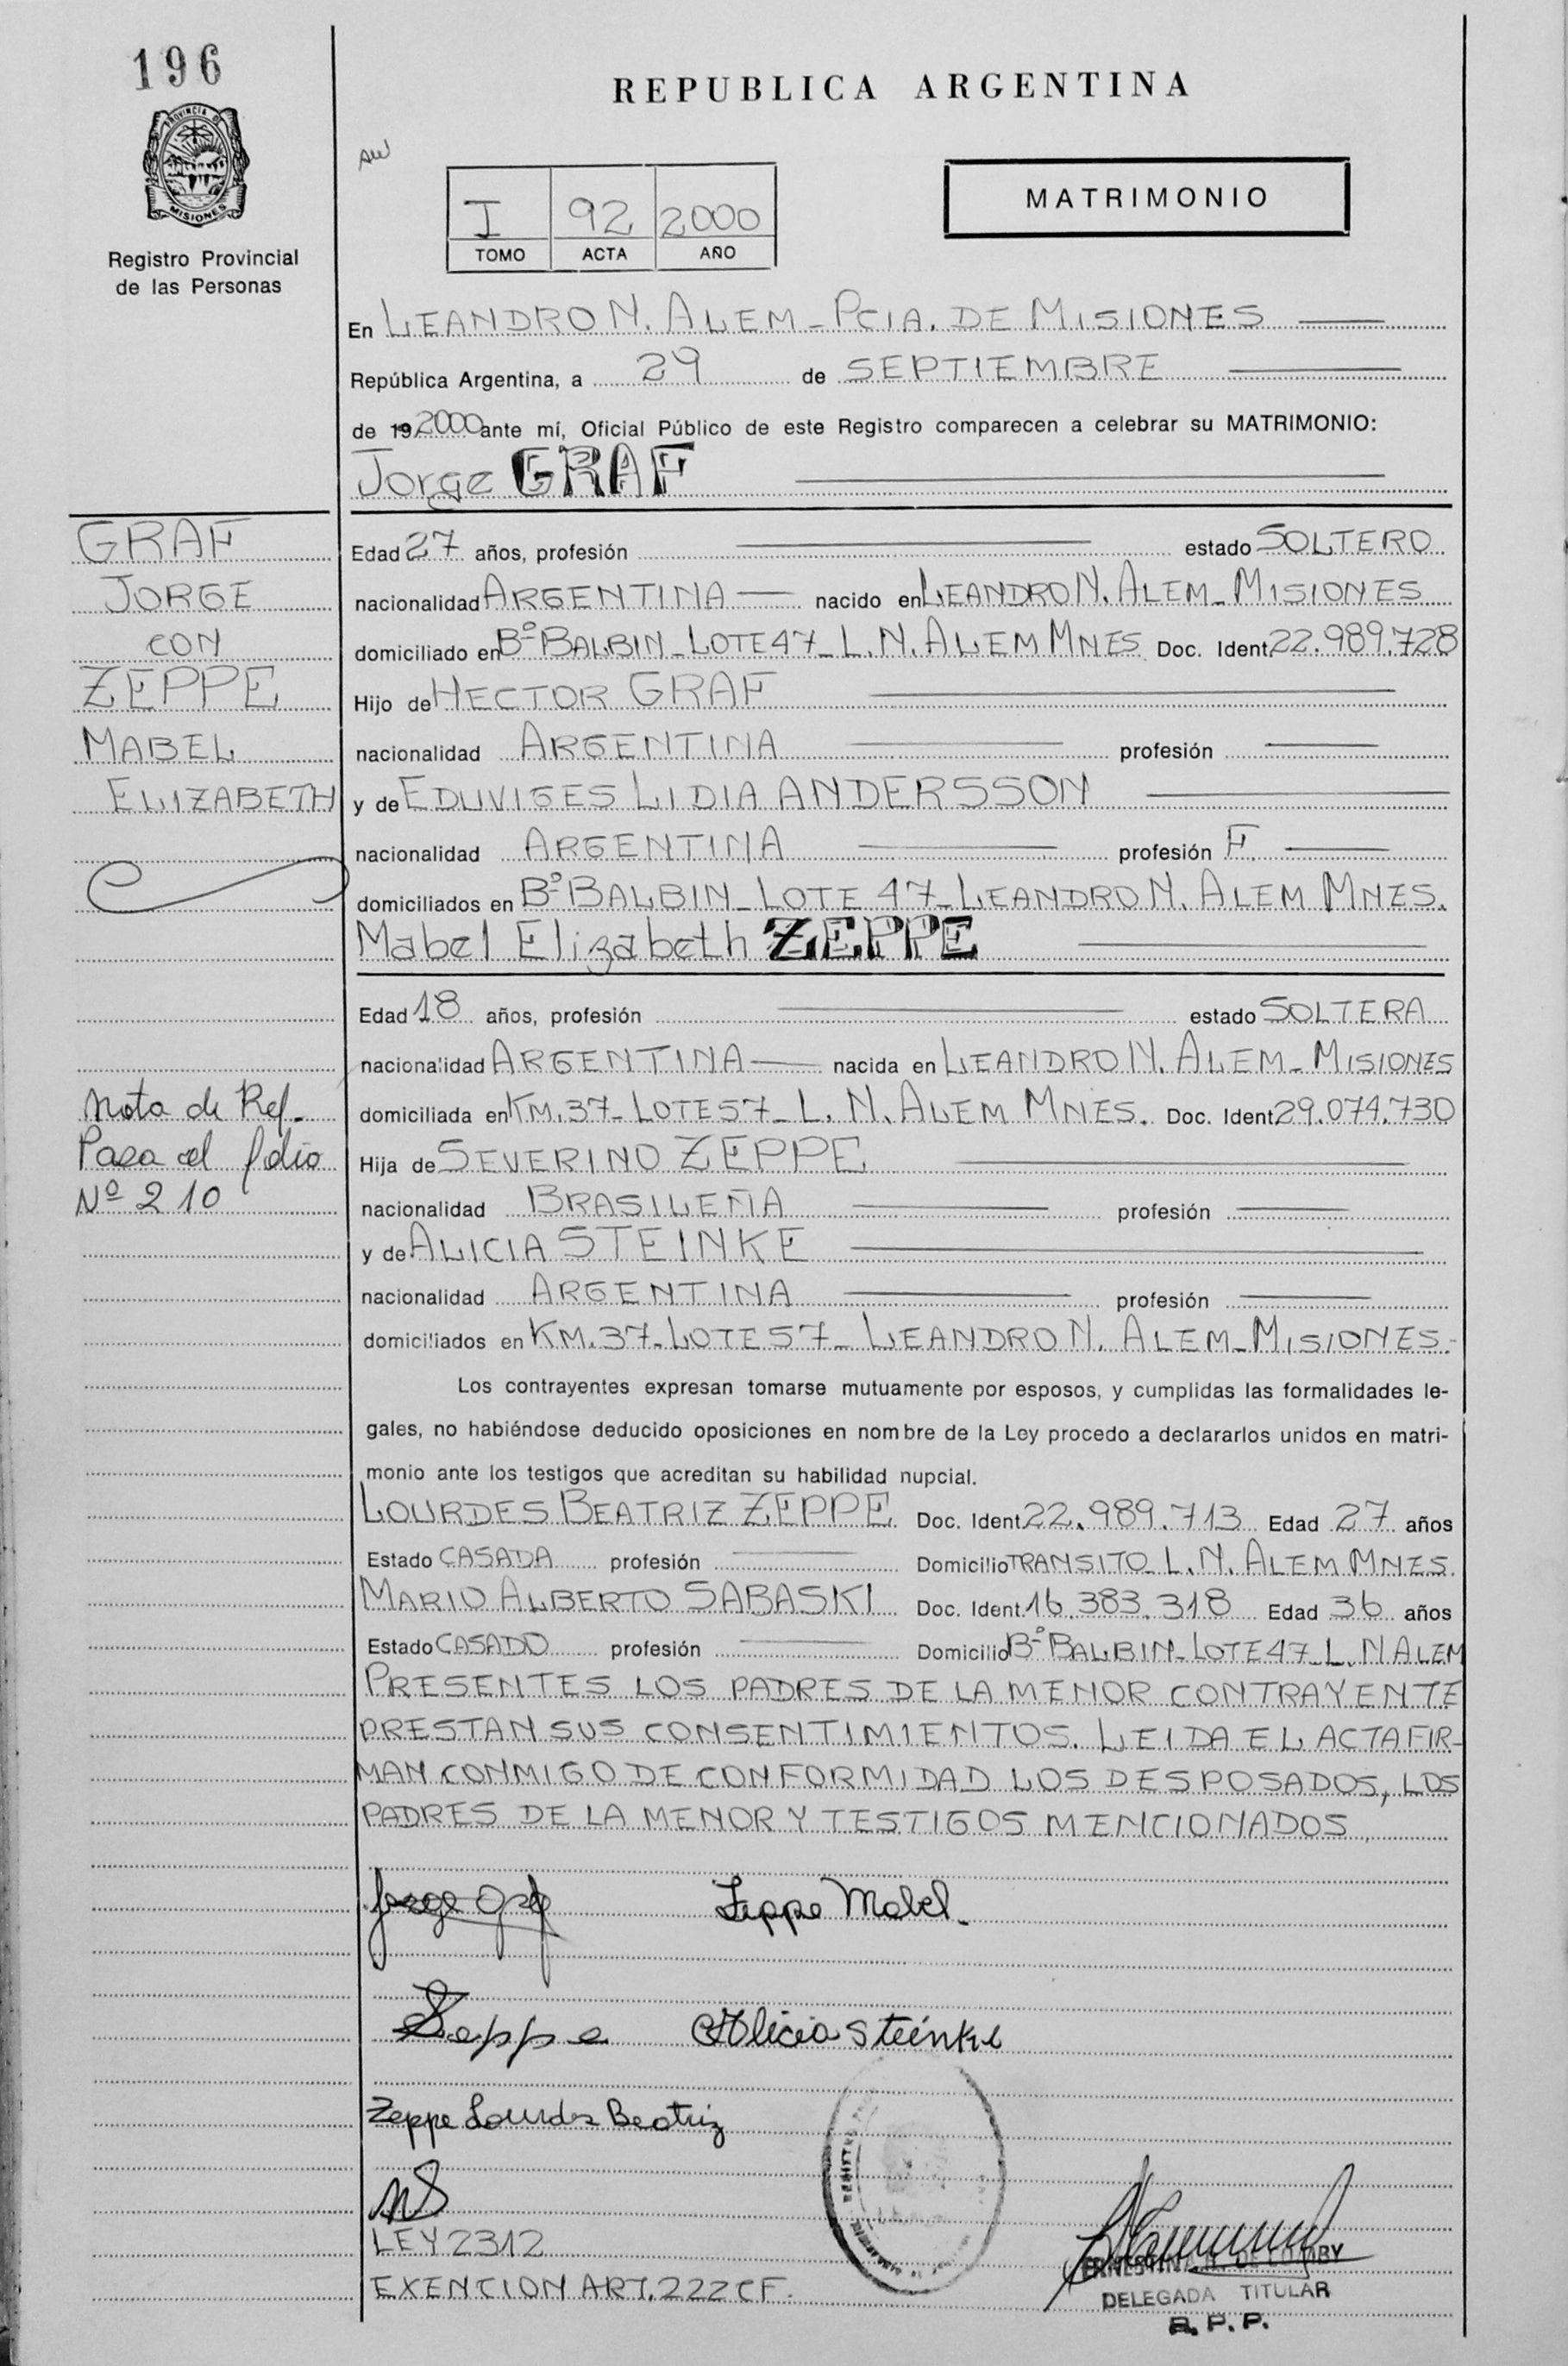 196
PROVINCIA DE
MISIONES
Registro Provincial
de las Personas
REPUBLICA ARGENTINA
I 92 2000
TOMO ACTA AÑO
MATRIMONIO
En LEANDRO N. ALEM - PCIA. DE MISIONES
República Argentina, a 29 de SEPTIEMBRE
de 19 2000 ante mí, Oficial Público de este Registro comparecen a celebrar su MATRIMONIO:
Jorge GRAF
GRAF
JORGE
CON
ZEPPE
MABEL
ELIZABETH
Edad 27 años, profesión estado SOLTERO
nacionalidad ARGENTINA nacido en LEANDRO N. ALEM - MISIONES
domiciliado en Bº BALBIN - LOTE 47 - L. N. ALEM MNES. Doc. Ident. 22.989.728
Hijo de HECTOR GRAF
nacionalidad ARGENTINA profesión
y de EDUVIGES LIDIA ANDERSSON
nacionalidad ARGENTINA profesión F.
domiciliados en Bº BALBIN - LOTE 47 - LEANDRO N. ALEM MNES.
Mabel Elizabeth ZEPPE
Edad 18 años, profesión estado SOLTERA
nacionalidad ARGENTINA nacida en LEANDRO N. ALEM - MISIONES
domiciliada en KM. 37 - LOTE 57 - L. N. ALEM MNES. Doc. Ident. 29.074.730
Hija de SEVERINO ZEPPE
nacionalidad BRASILEÑA profesión
y de ALICIA STEINKE
nacionalidad ARGENTINA profesión
domiciliados en KM. 37 - LOTE 57 - LEANDRO N. ALEM - MISIONES.-
Nota de Ref.
Pasa al folio
Nº 210
Los contrayentes expresan tomarse mutuamente por esposos, y cumplidas las formalidades le-
gales, no habiéndose deducido oposiciones en nombre de la Ley procedo a declararlos unidos en matri-
monio ante los testigos que acreditan su habilidad nupcial.
LOURDES BEATRIZ ZEPPE Doc. Ident. 22.989.713 Edad 27 años
Estado CASADA profesión Domicilio TRANSITO L. N. ALEM MNES.
MARIO ALBERTO SABASKI Doc. Ident. 16.383.318 Edad 36 años
Estado CASADO profesión Domicilio Bº BALBIN - LOTE 47 - L. N ALEM
PRESENTES LOS PADRES DE LA MENOR CONTRAYENTE
PRESTAN SUS CONSENTIMIENTOS. LEIDA EL ACTA FIR-
MAN CONMIGO DE CONFORMIDAD LOS DESPOSADOS, LOS
PADRES DE LA MENOR Y TESTIGOS MENCIONADOS
Jorge Graf Zeppe Mabel.
Zeppe Alicia Steinke
Zeppe Lourdes Beatriz
MS
LEY 2312
EXENCION ART. 222 C F.
DELEGADA TITULAR
R. P. P.